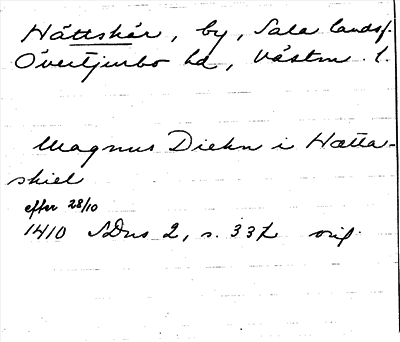 Hättskär, by, Sala landsf.
Övertjurbo hd, Västm. l.
Magnus Diekn i Hætta-
skiel
efter 28/10
1410 SDns 2, s. 337 orig.